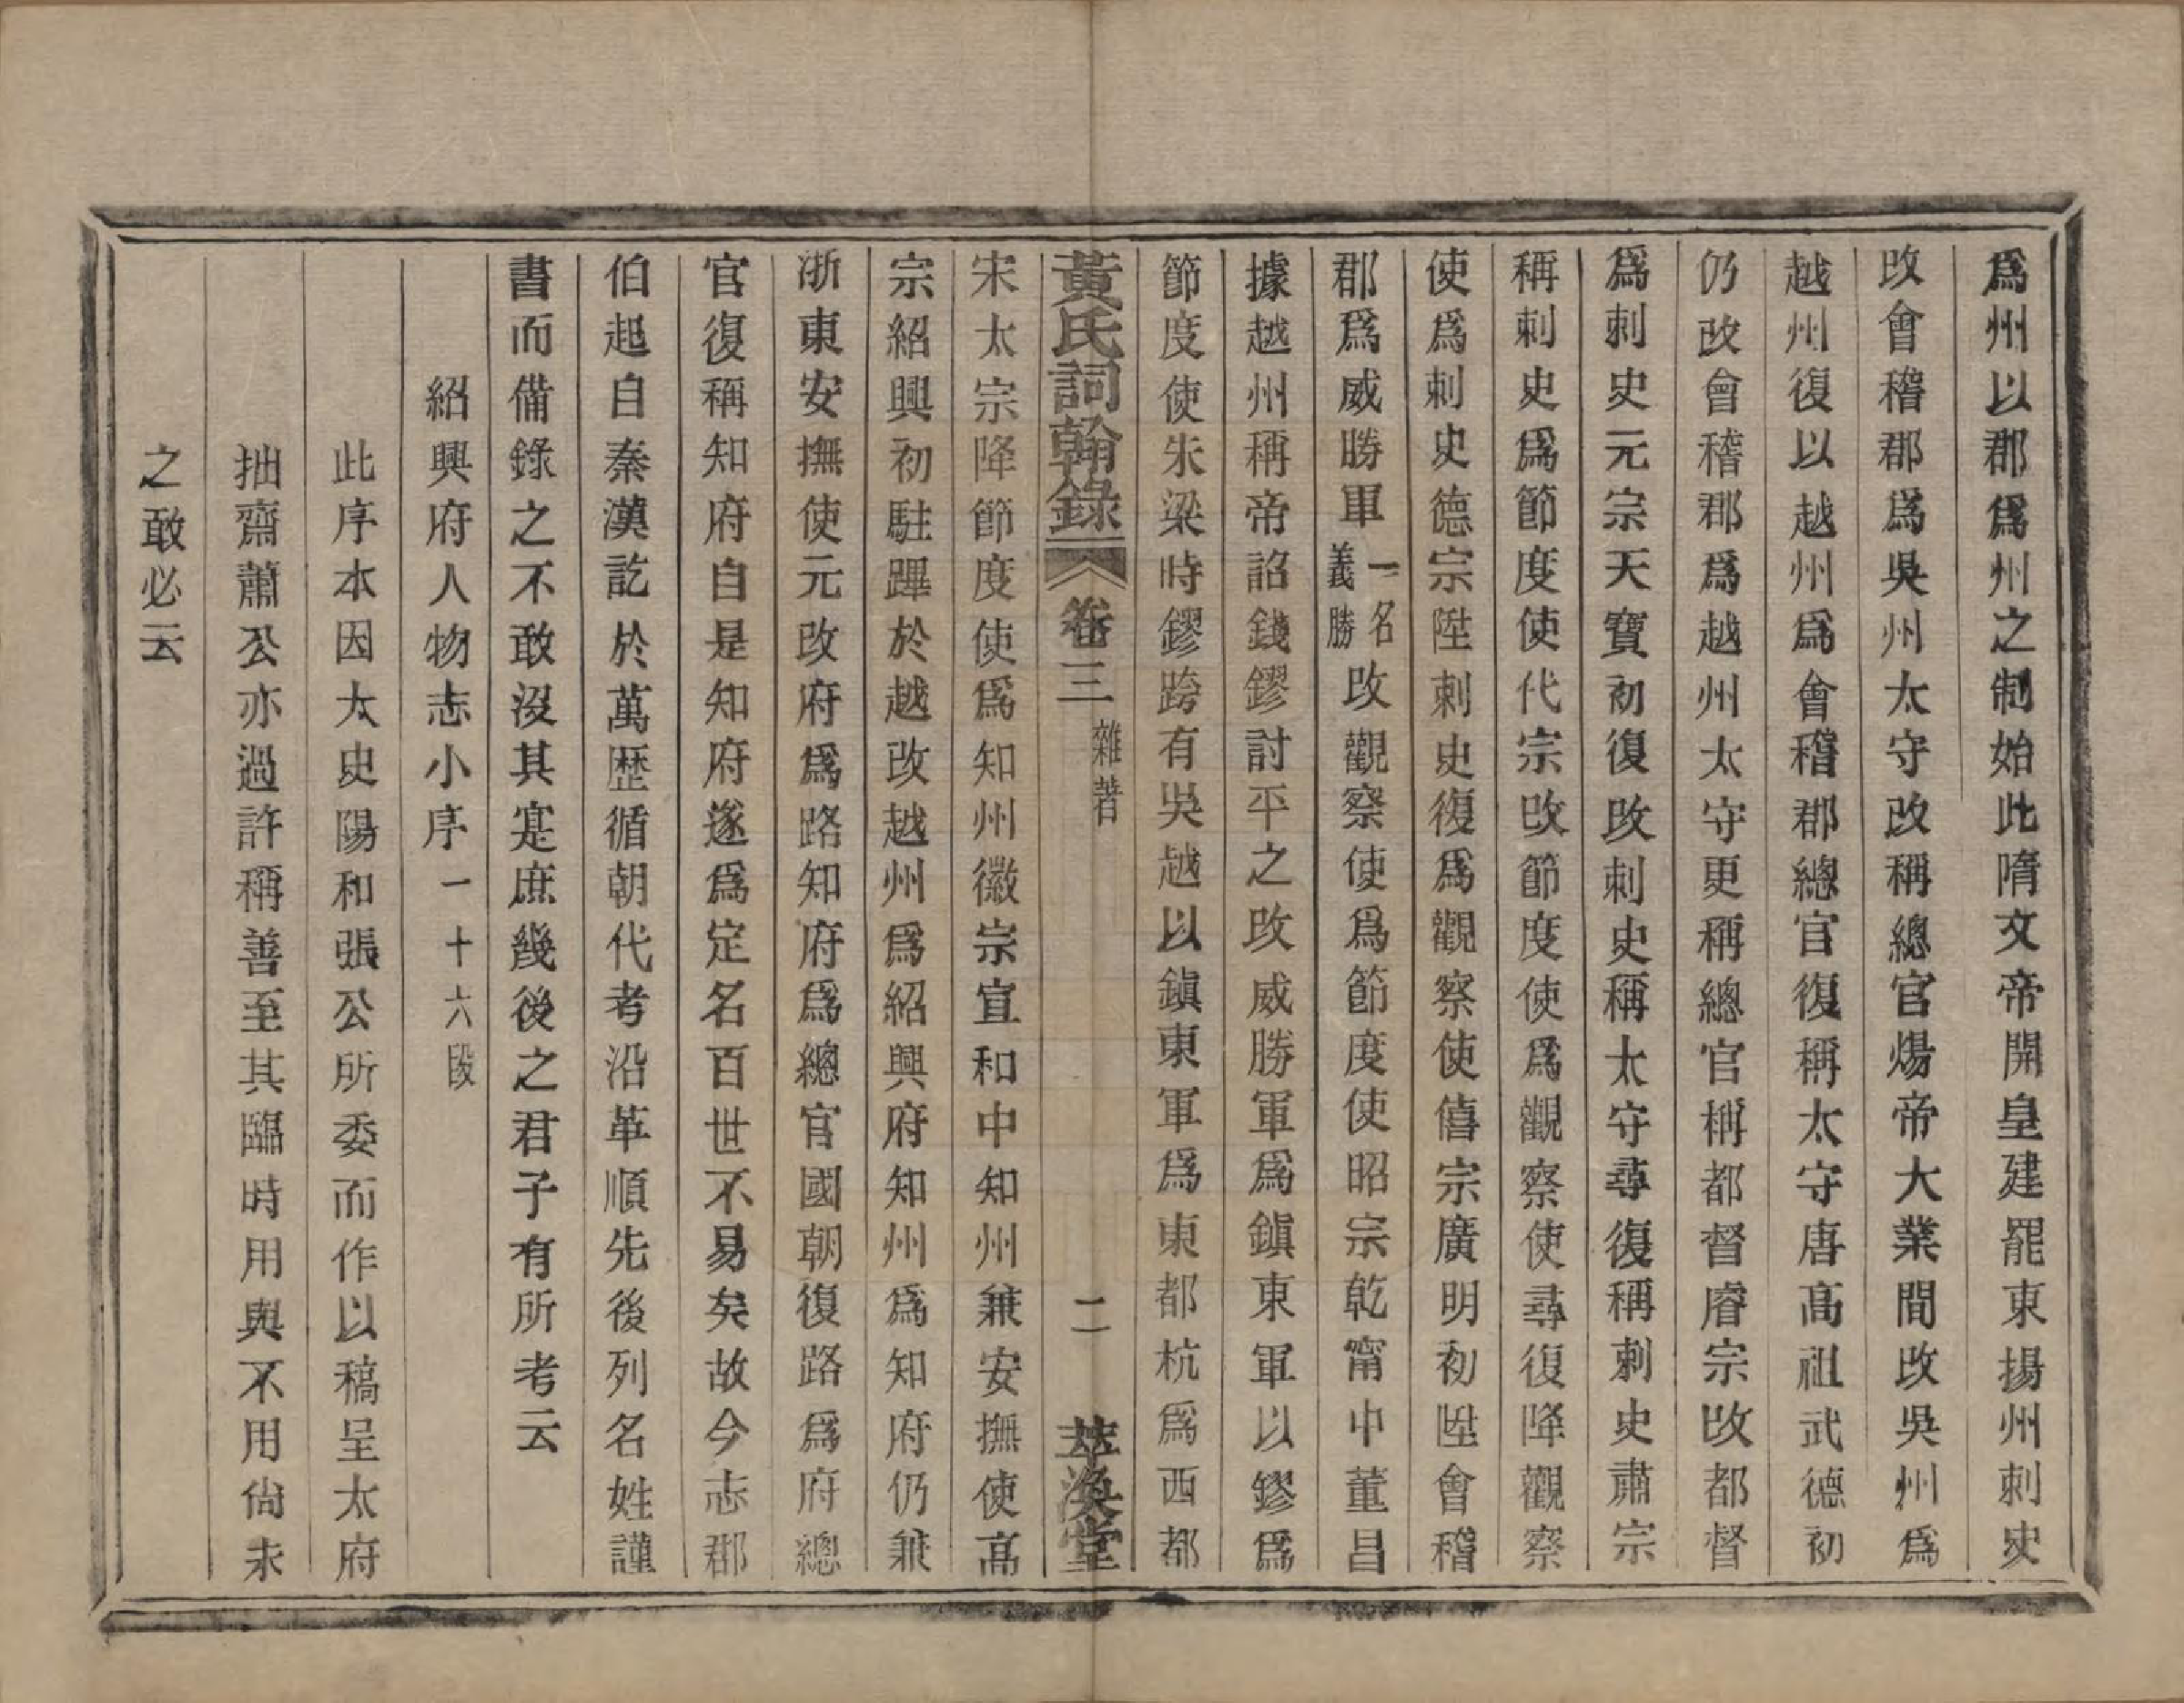 爲州以郡爲州之制始此隋文帝開皇建罷東揚州刺史
改會稽郡爲吳州太守改稱總官煬帝大業間改吳州爲
越州復以越州爲會稽郡總官復稱太守唐高祖武德初
仍改會稽郡爲越州太守更稱總官稱都督睿宗改都督
爲刺史元宗天寶初復改刺史稱太守尋復稱刺史肅宗
稱刺史爲節度使代宗改節度使爲觀察使尋復降觀察
使爲刺史德宗陞刺史復爲觀察使僖宗廣明初陞會稽
郡爲威勝軍一名義勝改觀察使爲節度使昭宗乾甯中董昌
據越州稱帝詔錢鏐討平之改威勝軍爲鎭東軍以鏐爲
節度使朱梁時鏐跨有吳越以鎭東軍爲東都杭爲西都
黃氏詞翰錄 卷三 雜著 二 萃渙堂
宋太宗降節度使爲知州徽宗宣和中知州兼安撫使高
宗紹興初駐蹕於越改越州爲紹興府知州爲知府仍兼
浙東安撫使元改府爲路知府爲總官國朝復路爲府總
官復稱知府自是知府遂爲定名百世不易矣故今志郡
伯起自秦漢訖於萬歴循朝代考沿革順先後列名姓謹
書而備錄之不敢沒其寔庶幾後之君子有所考云
紹興府人物志小序一十六段
此序本因太史陽和張公所委而作以稿呈太府
拙齋蕭公亦過許稱善至其臨時用與不用尙未
之敢必云